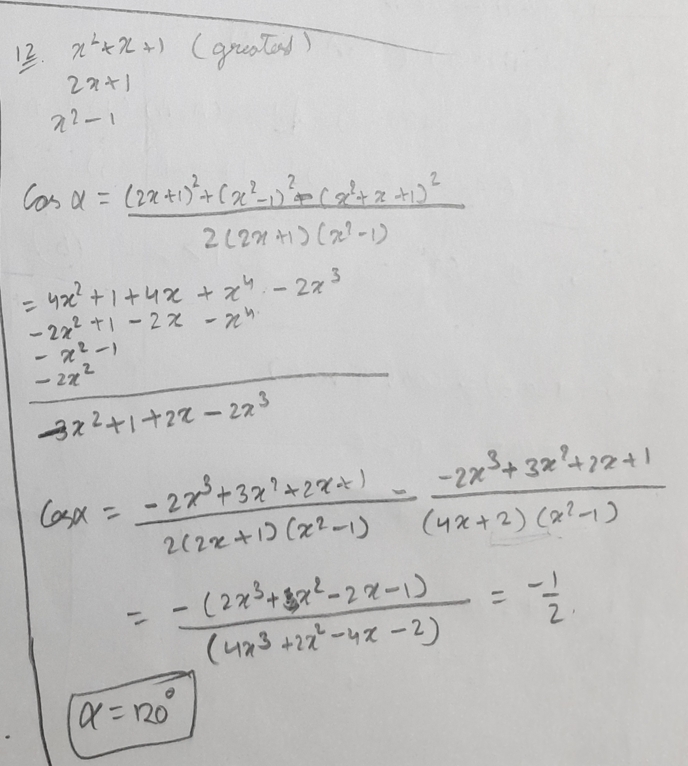 12. x²+x+1 (greatest)
2x+1
x²-1
Cos α = (2x+1)²+(x²-1)²-(x²+x+1)²
2(2x+1)(x²-1)
= 4x²+1+4x+x⁴-2x³
-2x²+1-2x-x⁴
-x²-1
-2x²
-3x²+1+2x-2x³
Cosα = -2x³+3x²+2x+1 / 2(2x+1)(x²-1) - -2x³+3x²+2x+1 / (4x+2)(x²-1)
= -(2x³+x²-2x-1) / (4x³+2x²-4x-2) = -1/2.
α=120°